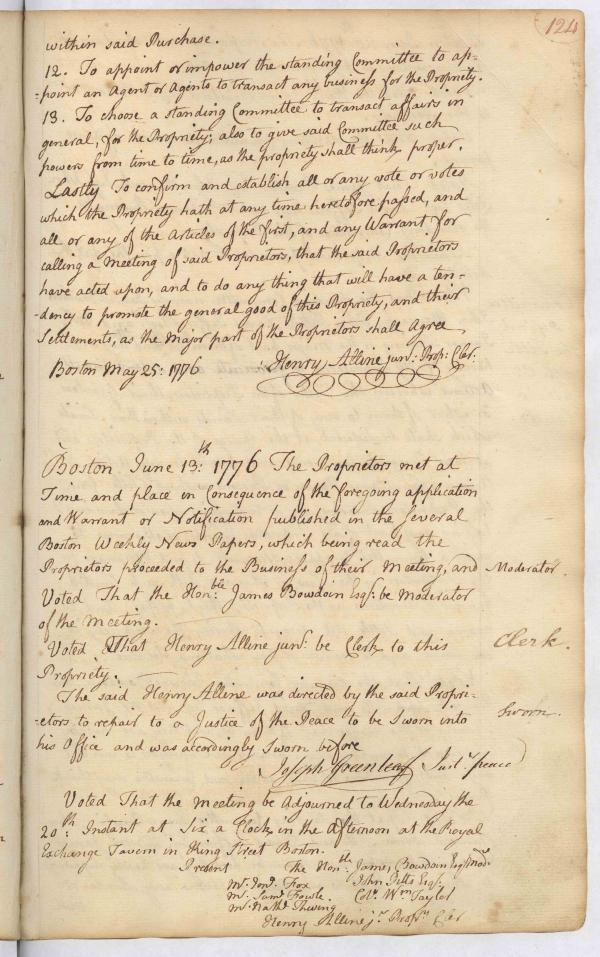 124
within said Purchase.
12. To appoint or impower the standing Committee to ap=
=point an Agent or Agents to transact any business for the Propriety.
13. To choose a standing Committee to transact affairs in
general, for the Propriety; also to give said Committee such
powers from time to time, as the propriety shall think proper.
Lastly To confirm and establish all or any vote or votes
which the Propriety hath at any time heretofore passed, and
all or any of the Articles of the first, and any Warrant for
calling a Meeting of said Proprietors, that the said Proprietors
have acted upon, and to do any thing that will have a ten=
=dency to promote the general good of this Propriety, and their
Settlements, as the Major part of the Proprietors shall Agree
Boston May 25: 1776 Henry Alline junr: Prop: Cler:
Boston June 13:th 1776 The Proprietors met at
Time and place in Consequence of the foregoing application
and Warrant or Notification published in the several
Boston Weekly News Papers, which being read the
Proprietors proceeded to the Business of their Meeting, and Moderator.
Voted That the Hon:ble James Bowdoin Esqr: be Moderator
of the Meeting.
Voted That Henry Alline junr: be Clerk to this Clerk.
Propriety.
The said Henry Alline was directed by the said Propri=
=etors to repair to a Justice of the Peace to be Sworn into Sworn.
his Office and was accordingly Sworn before
Joseph Greenleaf Justr: peace
Voted That the Meeting be Adjourned to Wednesday the
20th: Instant at Six a Clock in the Afternoon at the Royal
Exchange Tavern in King Street Boston.
Present The Honble: James Bowdoin Esqr Modr
Mr. Jonn. Fox John Pitts Esqr:
Mr. Saml. Fowle. Colo. Wm Taylor
Mr. Nathl. Thwing
Henry Alline jr. Propry Cler